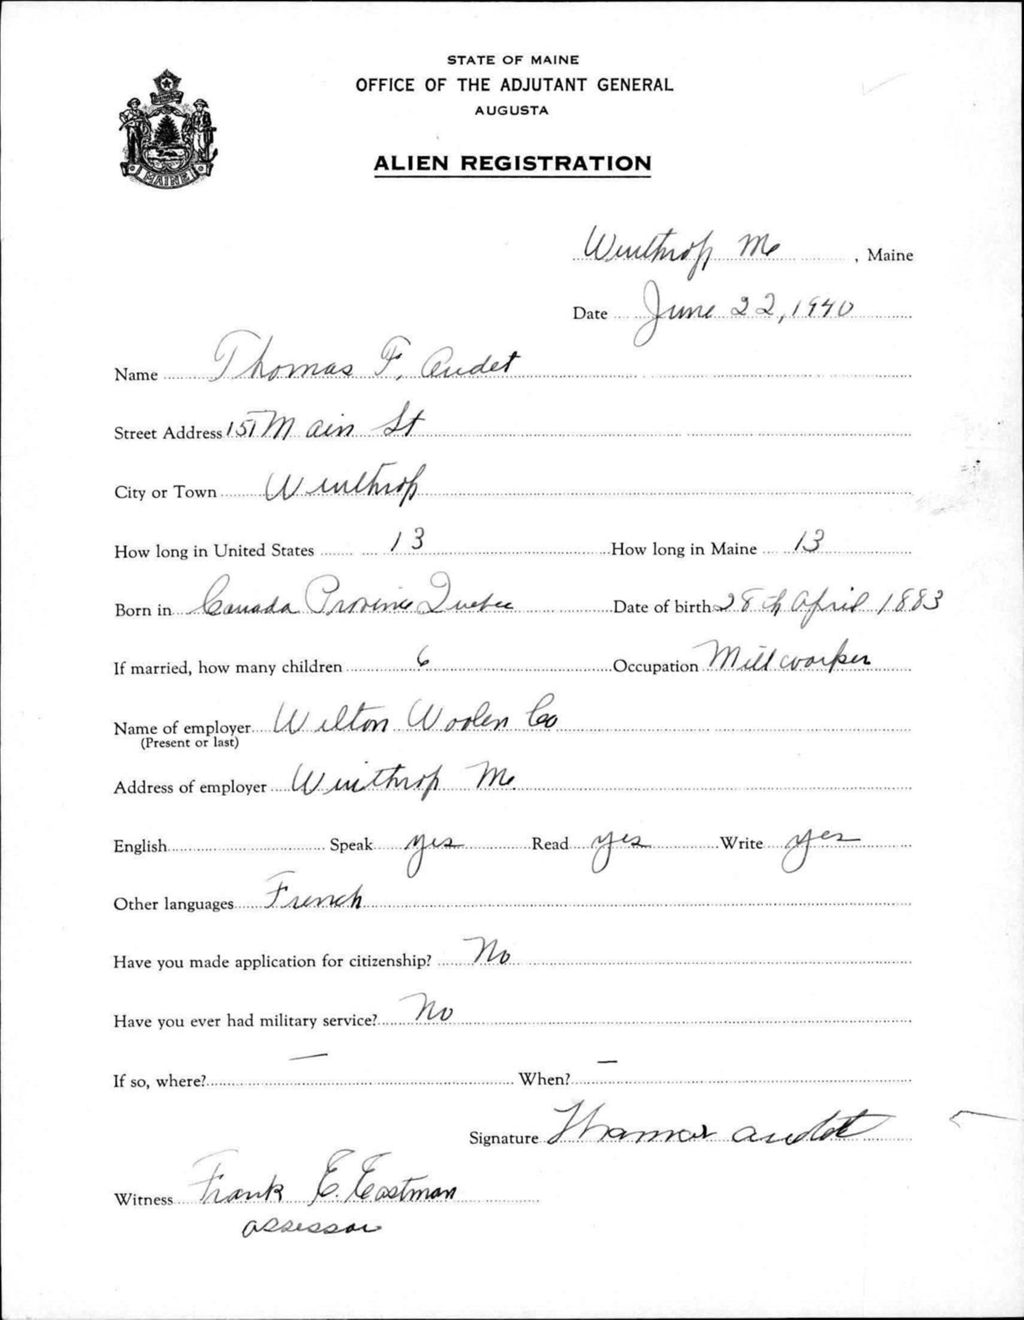 STATE OF MAINE
OFFICE OF THE ADJUTANT GENERAL
AUGUSTA
ALIEN REGISTRATION
MAINE
Winthrop Me , Maine
Date June 22, 1940
Name Thomas F. Audet
Street Address 151 Main St
City or Town Winthrop
How long in United States 13 How long in Maine 13
Born in Canada Province Quebec Date of birth 28th April 1883
If married, how many children 6 Occupation Mill worker
Name of employer Wilton Woolen Co
(Present or last)
Address of employer Winthrop Me.
English Speak yes Read yes Write yes
Other languages French
Have you made application for citizenship? No
Have you ever had military service? No
If so, where? — When? —
Signature Thomas Audet
Witness Frank E. Eastman
assessor